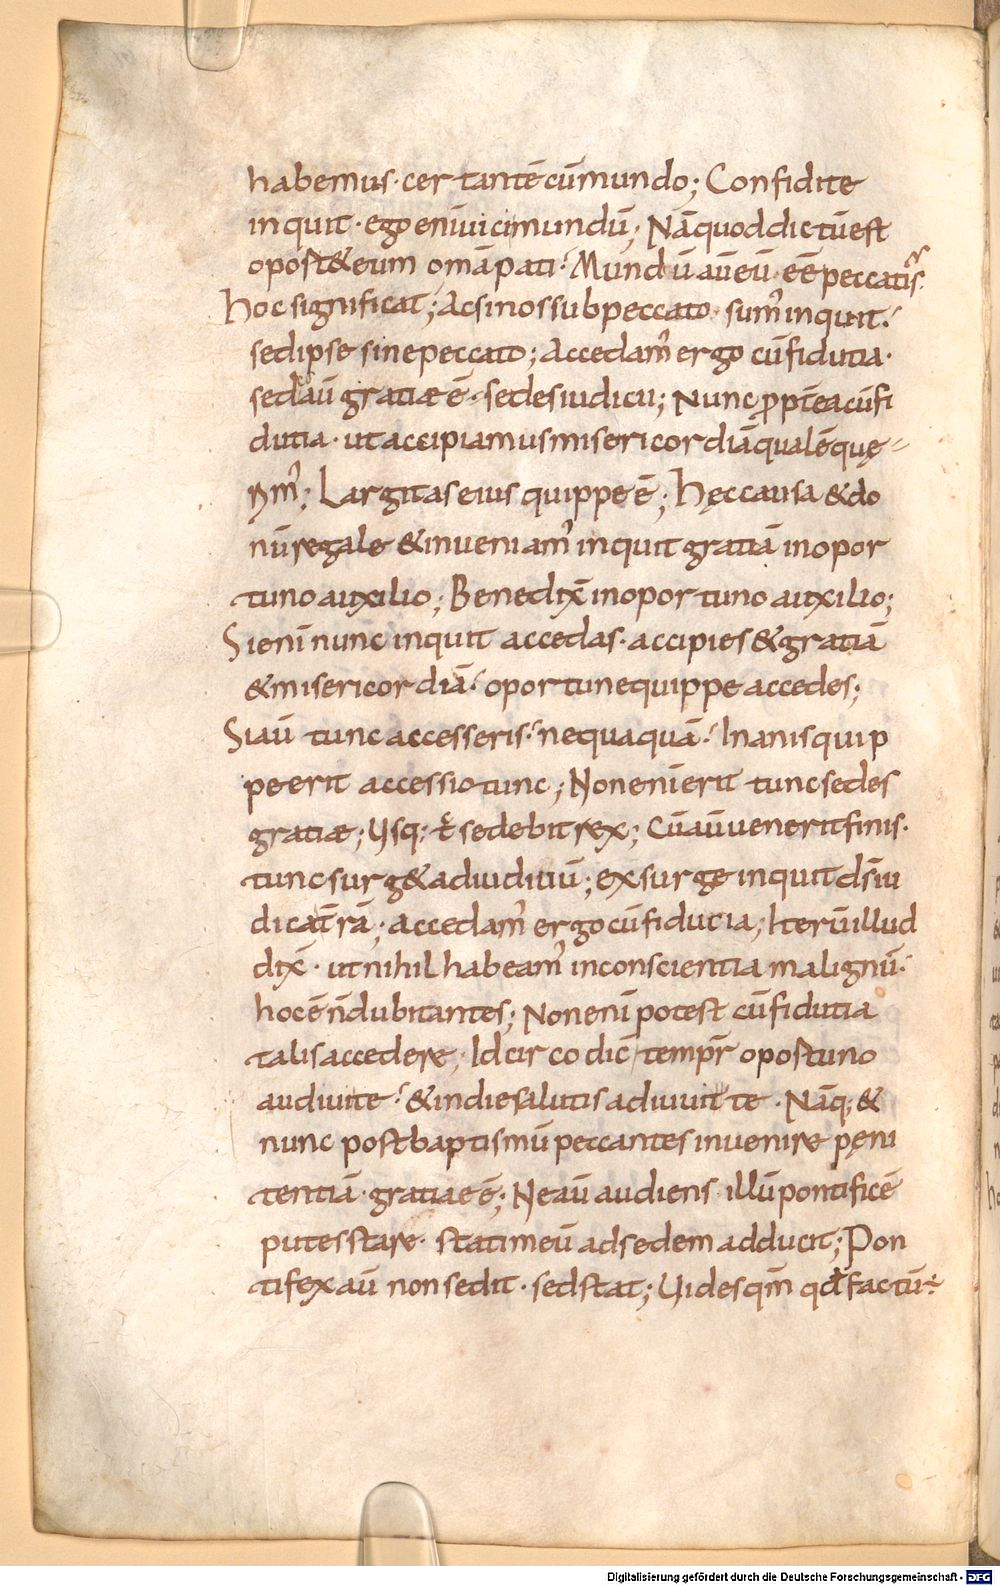 habemus· certantē cū mundo; Confidite
inquit· ego enī uici mundū; Nā quod dictū est
oport& eum omā pati· Mundū aūeū· eē peccatis·
hoc significat; Ac si nos sub peccato· sum᾽ inquit·
sed ipse sine peccato; Accedam᾽ ergo cū fidutia·
sed aū gratiae ē· sedes iudicii; Nunc ꝓpt̄ea cū fi
dutia· ut accipiamus misericordiā qualē quę
rim᾽; Largitas eius quippe ē; hęc causa & do
nū regale & inueniam᾽ inquit gratiā in opor
tuno auxilio; Bene dix̄ in oportuno auxilio;
Si enī nunc inquit accedas· accipies & gratiā
& misericordiā· oportune quippe accedes;
Si aū tunc accesseris· nequaquā· Inanis quip
pe erit accessio tunc; Non enī erit tunc sedes
gratiae; Usq; t̄ sedebit rex; Cū aū uenerit finis·
tunc surg& ad iudiciū; exsurge inquit d̄s iu
dica t̄rā; Accedam᾽ ergo cū fiducia; Iterū illud
dix̄· ut nihil habeam᾽ in conscientia malignū·
hoc ē n̄ dubitantes; Non enī potest cū fidutia
talis accedere; Idcirco dic̄ tempr̄ oportuno
audiui te· & in die salutis adiuui te· Nāq; &
nunc post baptismū peccantes inuenire pęni
tentiā· gratiae ē; Ne aū audiens illū pontificē
putes stare· statim eū ad sedem adducit; Pon
tifex aū non sedit· sed stat; Uides qm̄ qđ factū÷
Digitalisierung gefördert durch die Deutsche Forschungsgemeinschaft - DFG